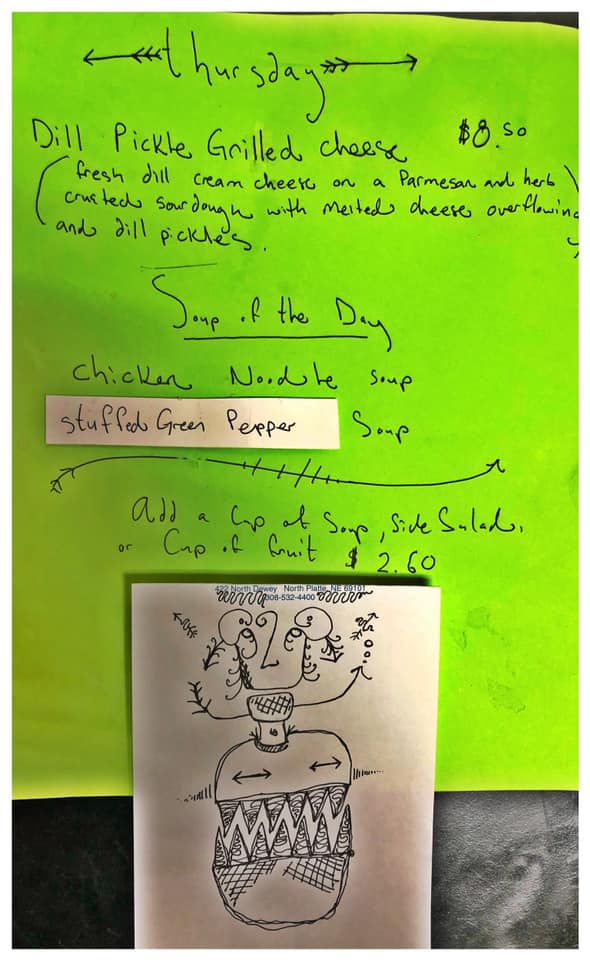 Thursday
Dill Pickle Grilled cheese $8.50
(fresh dill cream cheese on a Parmesan and herb
crusted sourdough with melted cheese overflowing
and dill pickles.)
Soup of the Day
chicken Noodle soup
stuffed Green Pepper Soup
Add a Cup of Soup, Side Salad,
or Cup of fruit $2.60
422 North Dewey North Platte, NE 69101
308-532-4400